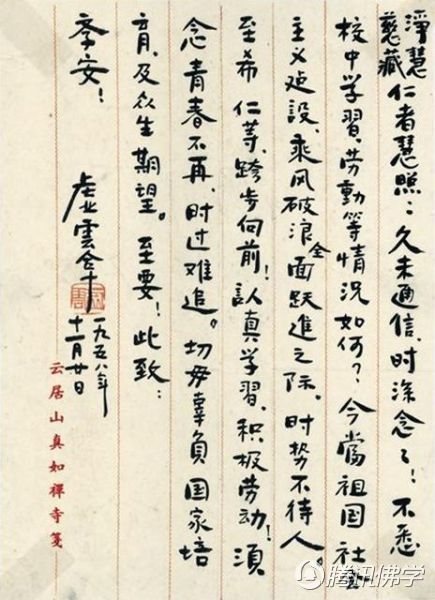 淨慧
慈藏
仁者慧照：久未通信，时深念々！不悉
校中学習、劳動等情况如何？今當祖国社会
主义建設、乘风破浪全面跃進之际，时势不待人。
至希 仁等，跨步向前！認真学習、积极劳动！須
念青春不再，时过难追。切毋辜負国家培
育，及众生期望。至要！此致：
季安！
虛雲合十
一九五八年
十一月廿日
云居山真如禪寺箋
腾讯佛学